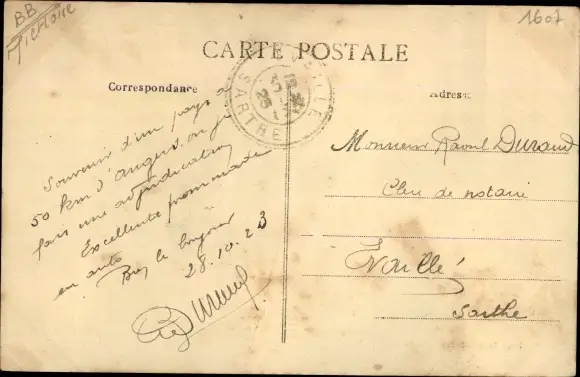 BB
1607
CARTE POSTALE
Correspondance
Adresse
SARTHE
Souvenir d'un pays à
50 km d'Angers où je
fais une adjudication
Excellente promenade
en auto
28.10.23
Monsieur Raoul Durand
Clerc de notaire
Evaillé
Sarthe